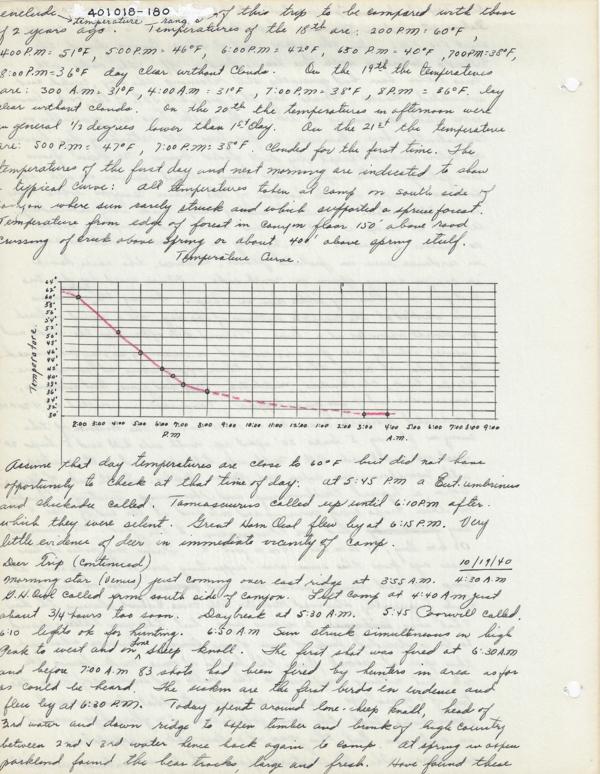 include temperature range of this trip to be compared with those
401018-180
of 2 years ago. Temperatures of the 18th are: 2:00 P.M = 60°F,
4:00 P.M: 51°F, 5:00 P.M = 46°F, 6:00 P.M = 42°F, 6:50 P.M = 40°F, 7:00 P.M = 38°F,
8:00 P.M = 36°F day clear without clouds. On the 19th the temperatures
are: 3:00 A.M: 31°F, 4:00 A.M = 31°F, 7:00 P.M = 38°F, 8 P.M = 36°F. Day
clear without clouds. On the 20th the temperatures in afternoon were
in general 1/2 degrees lower than 1st day. On the 21st the temperature
are: 5:00 P.M = 47°F, 7:00 P.M = 38°F. Clouded for the first time. The
temperatures of the first day and next morning are indicated to show
a typical curve: All temperatures taken at camp on south side of
canyon where sun rarely struck and which supported a spruce forest.
Temperature from edge of forest in canyon floor 150' above road
crossing of creek above Spring or about 400' above spring itself.
Temperature Curve.
Temperature.
64°
62°
60°
58°
56°
54°
52°
50°
48°
46°
44°
42°
40°
38°
36°
34°
32°
30°
2:00 3:00 4:00 5:00 6:00 7:00 8:00 9:00 10:00 11:00 12:00 1:00 2:00 3:00 4:00 5:00 6:00 7:00 8:00 9:00
P.M A.M.
Assume that day temperatures are close to 60°F but did not have
opportunity to check at that time of day. At 5:45 P.M a Eut. umbrinus
and chickadee called. Tamiasciurus called up until 6:10 P.M after
which they were silent. Great Horn Owl flew by at 6:15 P.M. Very
little evidence of deer in immediate vicinity of camp.
Deer Trip (continued) 10/19/40
Morning star (Venus) just coming over east ridge at 3:55 A.M. 4:30 A.M
G.H. Owl called from south side of canyon. Left camp at 4:40 A.M just
about 3/4 hours too soon. Daybreak at 5:30 A.M. 5:45 Poorwill called.
6:10 light ok for hunting. 6:50 A.M Sun struck simultaneous on high
peak to west and on lone sheep knoll. The first shot was fired at 6:30 A.M
and before 7:00 A.M 83 shots had been fired by hunters in area as far
as could be heard. The siskin are the first birds in evidence and
flew by at 6:30 P.M. Today spent around lone sheep knoll, head of
3rd water and down ridge to aspen timber and brink of high country
between 2nd & 3rd water hence back again to camp. At spring in aspen
parkland found the bear tracks, large and fresh. Have found these